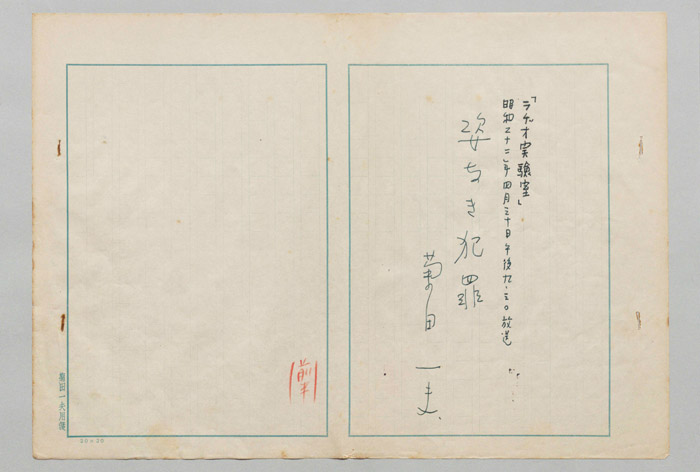 「ラヂオ実験室」
昭和二十二年四月三十日午後九・三〇放送
姿なき犯罪
菊田一夫
前半
菊田一夫用箋
20×20